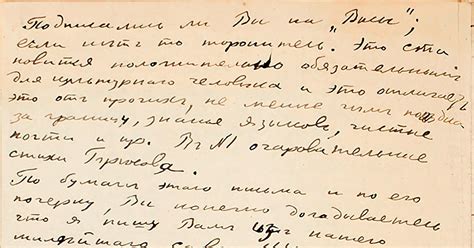 Подписались ли Вы на "Весы";
если нетъ то торопитесь. Это ста
новится положительно обязательнымъ
для культурнаго человѣка и это отличаетъ
это отъ прочихъ, не менѣе чѣмъ поѣздка
за границу, знанье языковъ, чистые
ногти и пр. Въ №1 очаровательные
стихи Брюсова.
По бумагѣ этого письма и по его
почерку, Вы конечно догадываетесь
что я пишу Вамъ изъ нашего
милѣйшаго